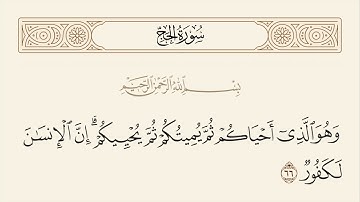 سُورَةُ الحَجِّ
بِسْمِ ٱللَّهِ ٱلرَّحْمَٰنِ ٱلرَّحِيمِ
وَهُوَ ٱلَّذِىٓ أَحْيَاكُمْ ثُمَّ يُمِيتُكُمْ ثُمَّ يُحْيِيكُمْ ۗ إِنَّ ٱلْإِنسَـٰنَ
لَكَفُورٌ ٦٦